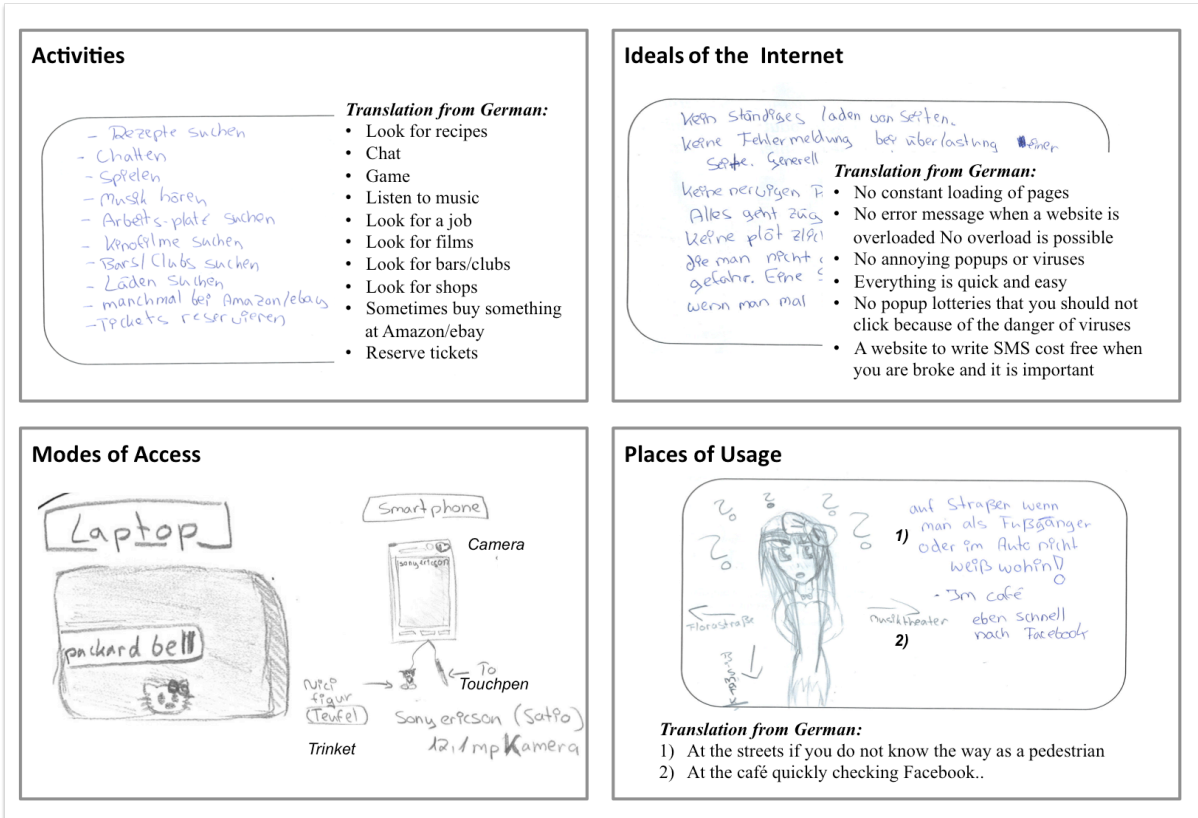 Activities
- Rezepte suchen
- Chatten
- Spielen
- Musik hören
- Arbeits-platz suchen
- Kinofilme suchen
- Bars/Clubs suchen
- Läden suchen
- manchmal bei Amazon/ebay
- Tickets reservieren
Translation from German:
• Look for recipes
• Chat
• Game
• Listen to music
• Look for a job
• Look for films
• Look for bars/clubs
• Look for shops
• Sometimes buy something
at Amazon/ebay
• Reserve tickets
Ideals of the Internet
Kein ständiges laden von Seiten.
Keine Fehlermeldung bei überlastung einer
Seite. Generell
Keine nervigen P
Alles geht züg
Keine plöt zlic
die man nicht
gefahr. Eine S
wenn man mal
Translation from German:
• No constant loading of pages
• No error message when a website is
overloaded No overload is possible
• No annoying popups or viruses
• Everything is quick and easy
• No popup lotteries that you should not
click because of the danger of viruses
• A website to write SMS cost free when
you are broke and it is important
Modes of Access
Laptop
packard bell
Smartphone
Camera
sony ericson
To
Touchpen
Nici
figur
(Teufel)
Trinket
Sony ericson (Satio)
12,1mp Kamera
Places of Usage
? ? ? ? ?
auf Straßen wenn
1) man als Fußgänger
oder im Auto nicht
weiß wohin!
- Im café
eben schnell
nach Facebook
2)
Florastraße
Musiktheater
Translation from German:
1) At the streets if you do not know the way as a pedestrian
2) At the café quickly checking Facebook..